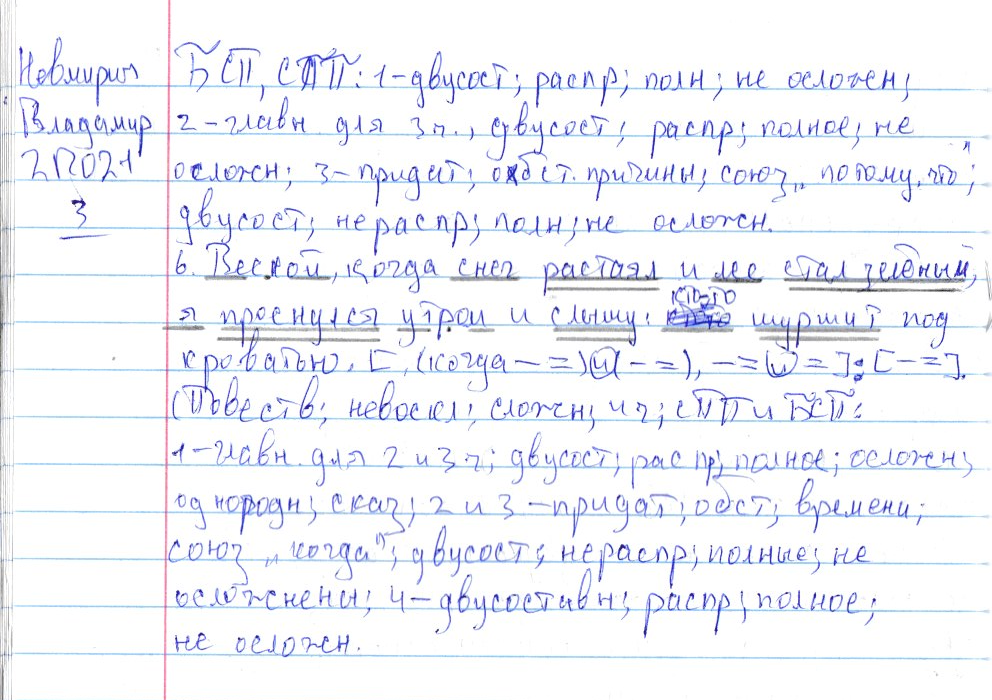 Невмирич
Владимир
2ПО21
3
БСП, СПП: 1-двусост; распр; полн; не осложн;
2-главн для 3ч., двусост; распр; полное; не
осложн; 3-придат; обст. причины; союз „потому, что";
двусост; нераспр; полн; не осложн.
6. Весной, когда снег растаял и лес стал зелёным,
я проснулся утром и слышу: кто-то шуршит под
кроватью. [, (когда — =) и (— =), — = и = ] : [ — = ].
(Повеств; невоскл; сложн; 4 ч; СПП и БСП:
1-главн. для 2 и 3 ч; двусост; распр; полное; осложн;
однородн; сказ; 2 и 3-придат; обст; времени;
союз „когда"; двусост; нераспр; полные; не
осложнены; 4-двусоставн; распр; полное;
не осложн.